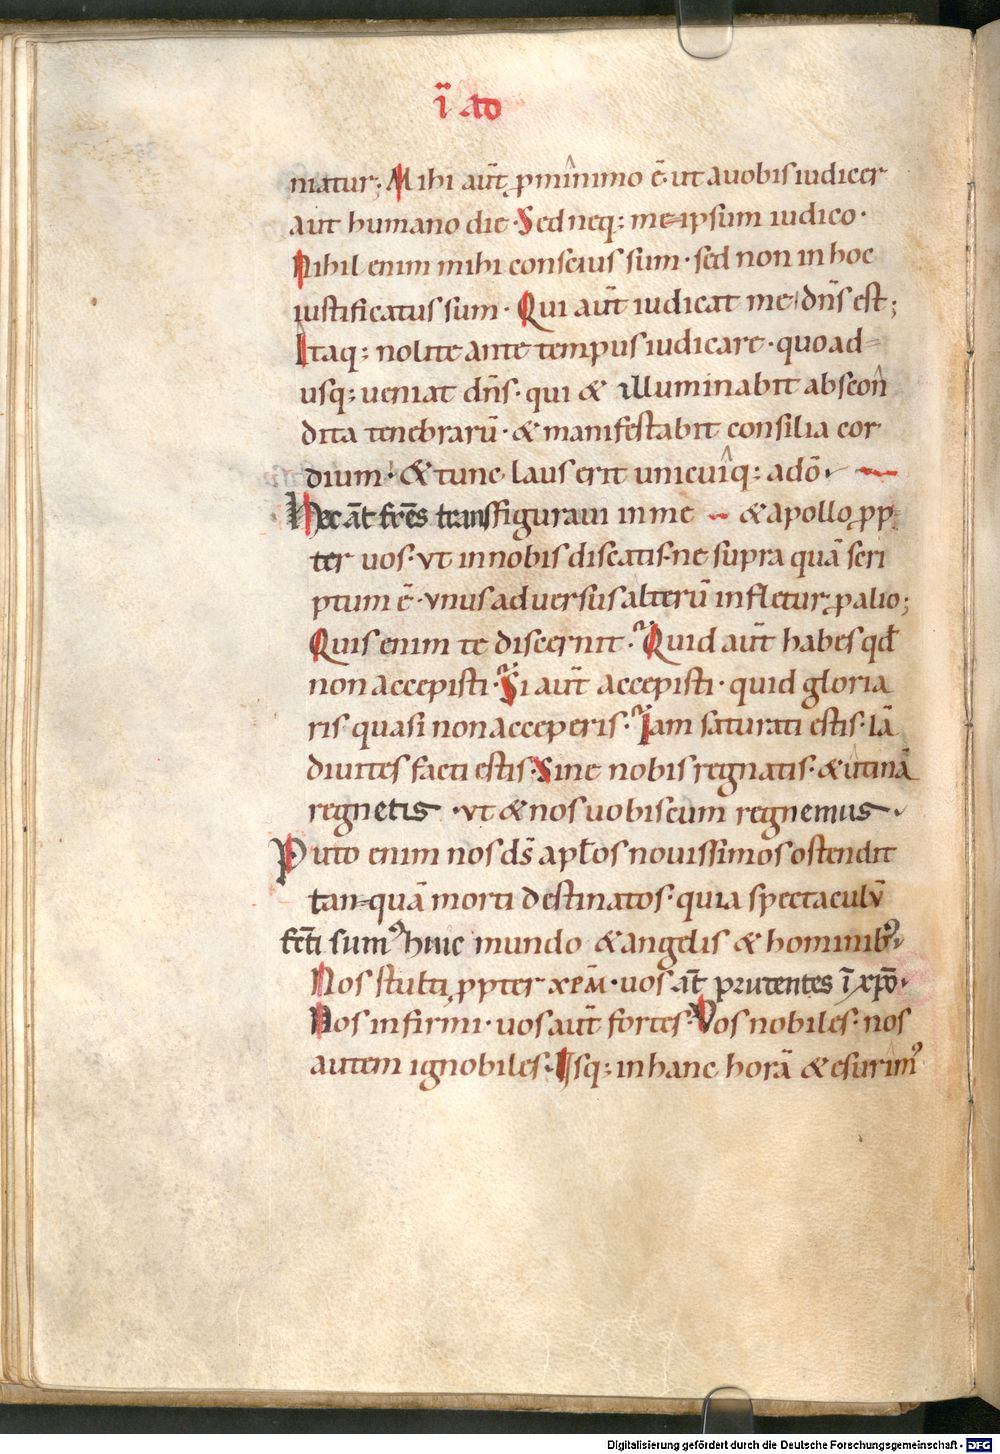 ī ad
niatur; Mihi aūt ꝓ minimo ē· ut a vobis iudicer
aut humano die· Sed neq; me ipsum iudico·
Nihil enim mihi conscius sum· sed non in hoc
iustificatus sum· Qui aūt iudicat me· dn̄s est;
Itaq; nolite ante tempus iudicare· quo ad-
usq; ueniat dn̄s· qui & illuminabit abscon
dita tenebrarū· & manifestabit consilia cor
dium· & tunc laus erit unicuiq; a dō·
Hec āt fr̄es transfiguraui in me & apollo ꝓp
ter uos· ut in nobis discatis· ne supra quā scri
ptum ē· unus adversus alterū infletur ꝓ alio;
Quis enim te discernit· Quid aūt habes qđ
non accepisti· Si aūt accepisti· quid gloria
ris quasi non acceperis· Iam saturati estis· iā
diuites facti estis· Sine nobis regnatis· & utinā
regnetis· ut & nos uobiscum regnemus·
Puto enim nos ds̄ apl̄os nouissimos ostendit
tan-quā morti destinatos· quia spectaculū
fc̄ti sumꝰ huic mundo & angelis & hominibꝰ·
Nos stulti ꝓpter xp̄m· uos āt prutentes ī xp̄o·
Nos infirmi· uos aūt fortes· Vos nobiles· nos
autem ignobiles· Usq; in hanc horā & esurimꝰ
Digitalisierung gefördert durch die Deutsche Forschungsgemeinschaft - DFG